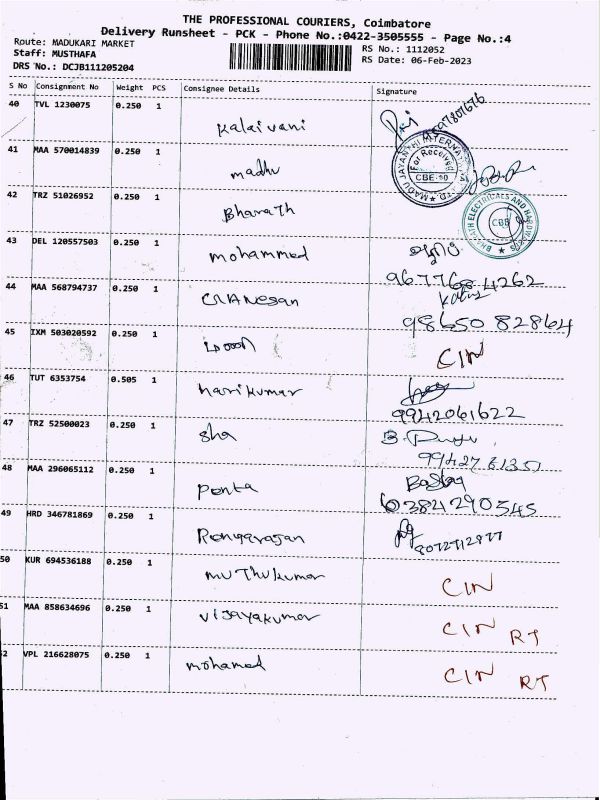 THE PROFESSIONAL COURIERS, Coimbatore
Delivery Runsheet - PCK - Phone No.:0422-3505555 - Page No.:4
Route: MADUKARI MARKET
Staff: MUSTHAFA
DRS No.: DCJB111205204
RS No.: 1112052
RS Date: 06-Feb-2023
S No Consignment No Weight PCS Consignee Details Signature
40 TVL 1230075 0.250 1 Kalaivani
41 MAA 570014839 0.250 1 madhu
For Received
CBE-
42 TRZ 51026952 0.250 1 Bharath
BHARATH ELECTRICALS AND HARDWARES
CBE
43 DEL 120557503 0.250 1 mohammed
96776 84262
44 MAA 568794737 0.250 1
98650 82864
45 IXM 503020592 0.250 1 CIN
46 TUT 6353754 0.505 1 harikumar
9942061622
47 TRZ 52500023 0.250 1 sha
48 MAA 296065112 0.250 1 Penta
6384290545
49 HRD 346781869 0.250 1 Rengarajan
50 KUR 694536188 0.250 1 muthukumar CIN
51 MAA 858634696 0.250 1 vijayakumar CIN RT
52 VPL 216628075 0.250 1 mohamed CIN RT